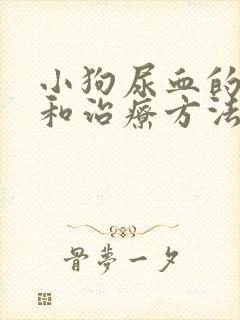 小狗尿血的
和治疗方法
骨夢一夕